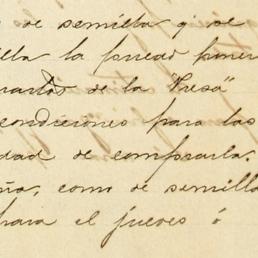 de semilla q. se
lla la pueda poner
cuartos de la "Presa"
condiciones para las
dad de comprarla.
ña, como de semilla
para el jueves ó